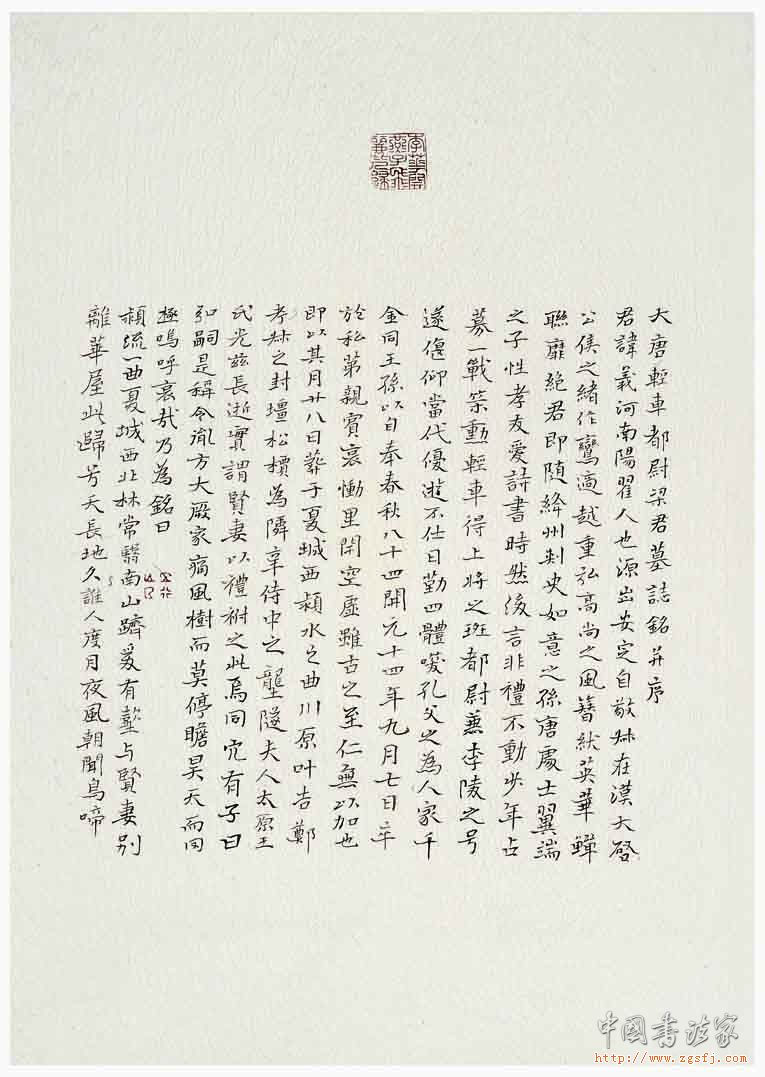 大唐輕車都尉梁君墓誌銘并序
君諱義河南陽翟人也源出安定自敬叔在漢大啓
公侯之緒作鸞適越重弘高尚之風簪紱英華蟬
聯靡絕君即隨絳州刺史如意之孫唐處士翼端
之子性孝友愛詩書時然後言非禮不動少年占
募一戰策勳輕車得上將之班都尉無李陵之号
遂偃仰當代優遊不仕日勤四體噯孔父之為人家千
金同王孫以自奉春秋八十四開元十四年九月七日卒
於私第親賓哀慟里閈空虛雖古之至仁無以加也
即以其月廿八日葬于夏城西潁水之曲川原叶吉鄭
考叔之封壇松檟為隣辛侍中之壟隧夫人太原王
氏光茲長逝實謂賢妻以禮祔之此焉同穴有子曰
弘嗣是稱令胤方大厥家痛風樹而莫停瞻昊天而同
極嗚呼哀哉乃為銘曰
潁流一曲夏城西北林常翳南山躋爰有藝与賢妻別
離華屋此歸芳天長地久誰人度月夜風朝聞鳥啼
中国书法家
http://www.zgsfj.com